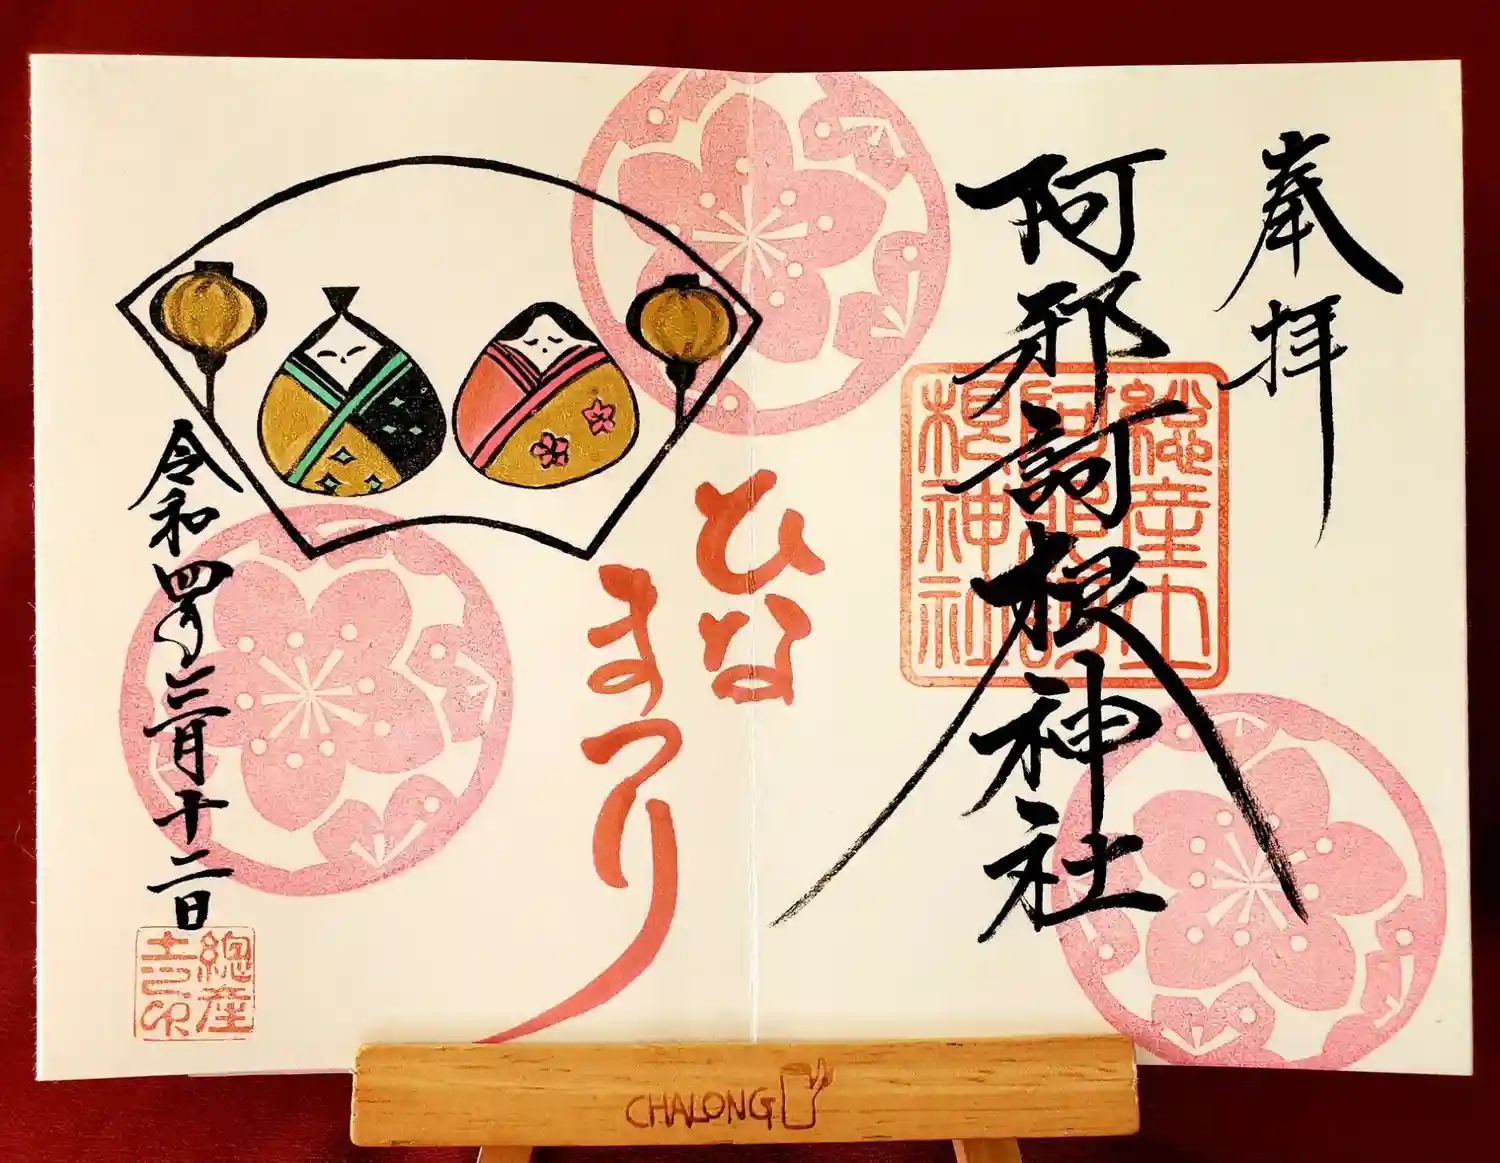 奉拝
阿邪訶根神社
總産土
阿邪訶
根神社
ひな
まつり
令和四年二月十二日
總産
土之印
CHALONG